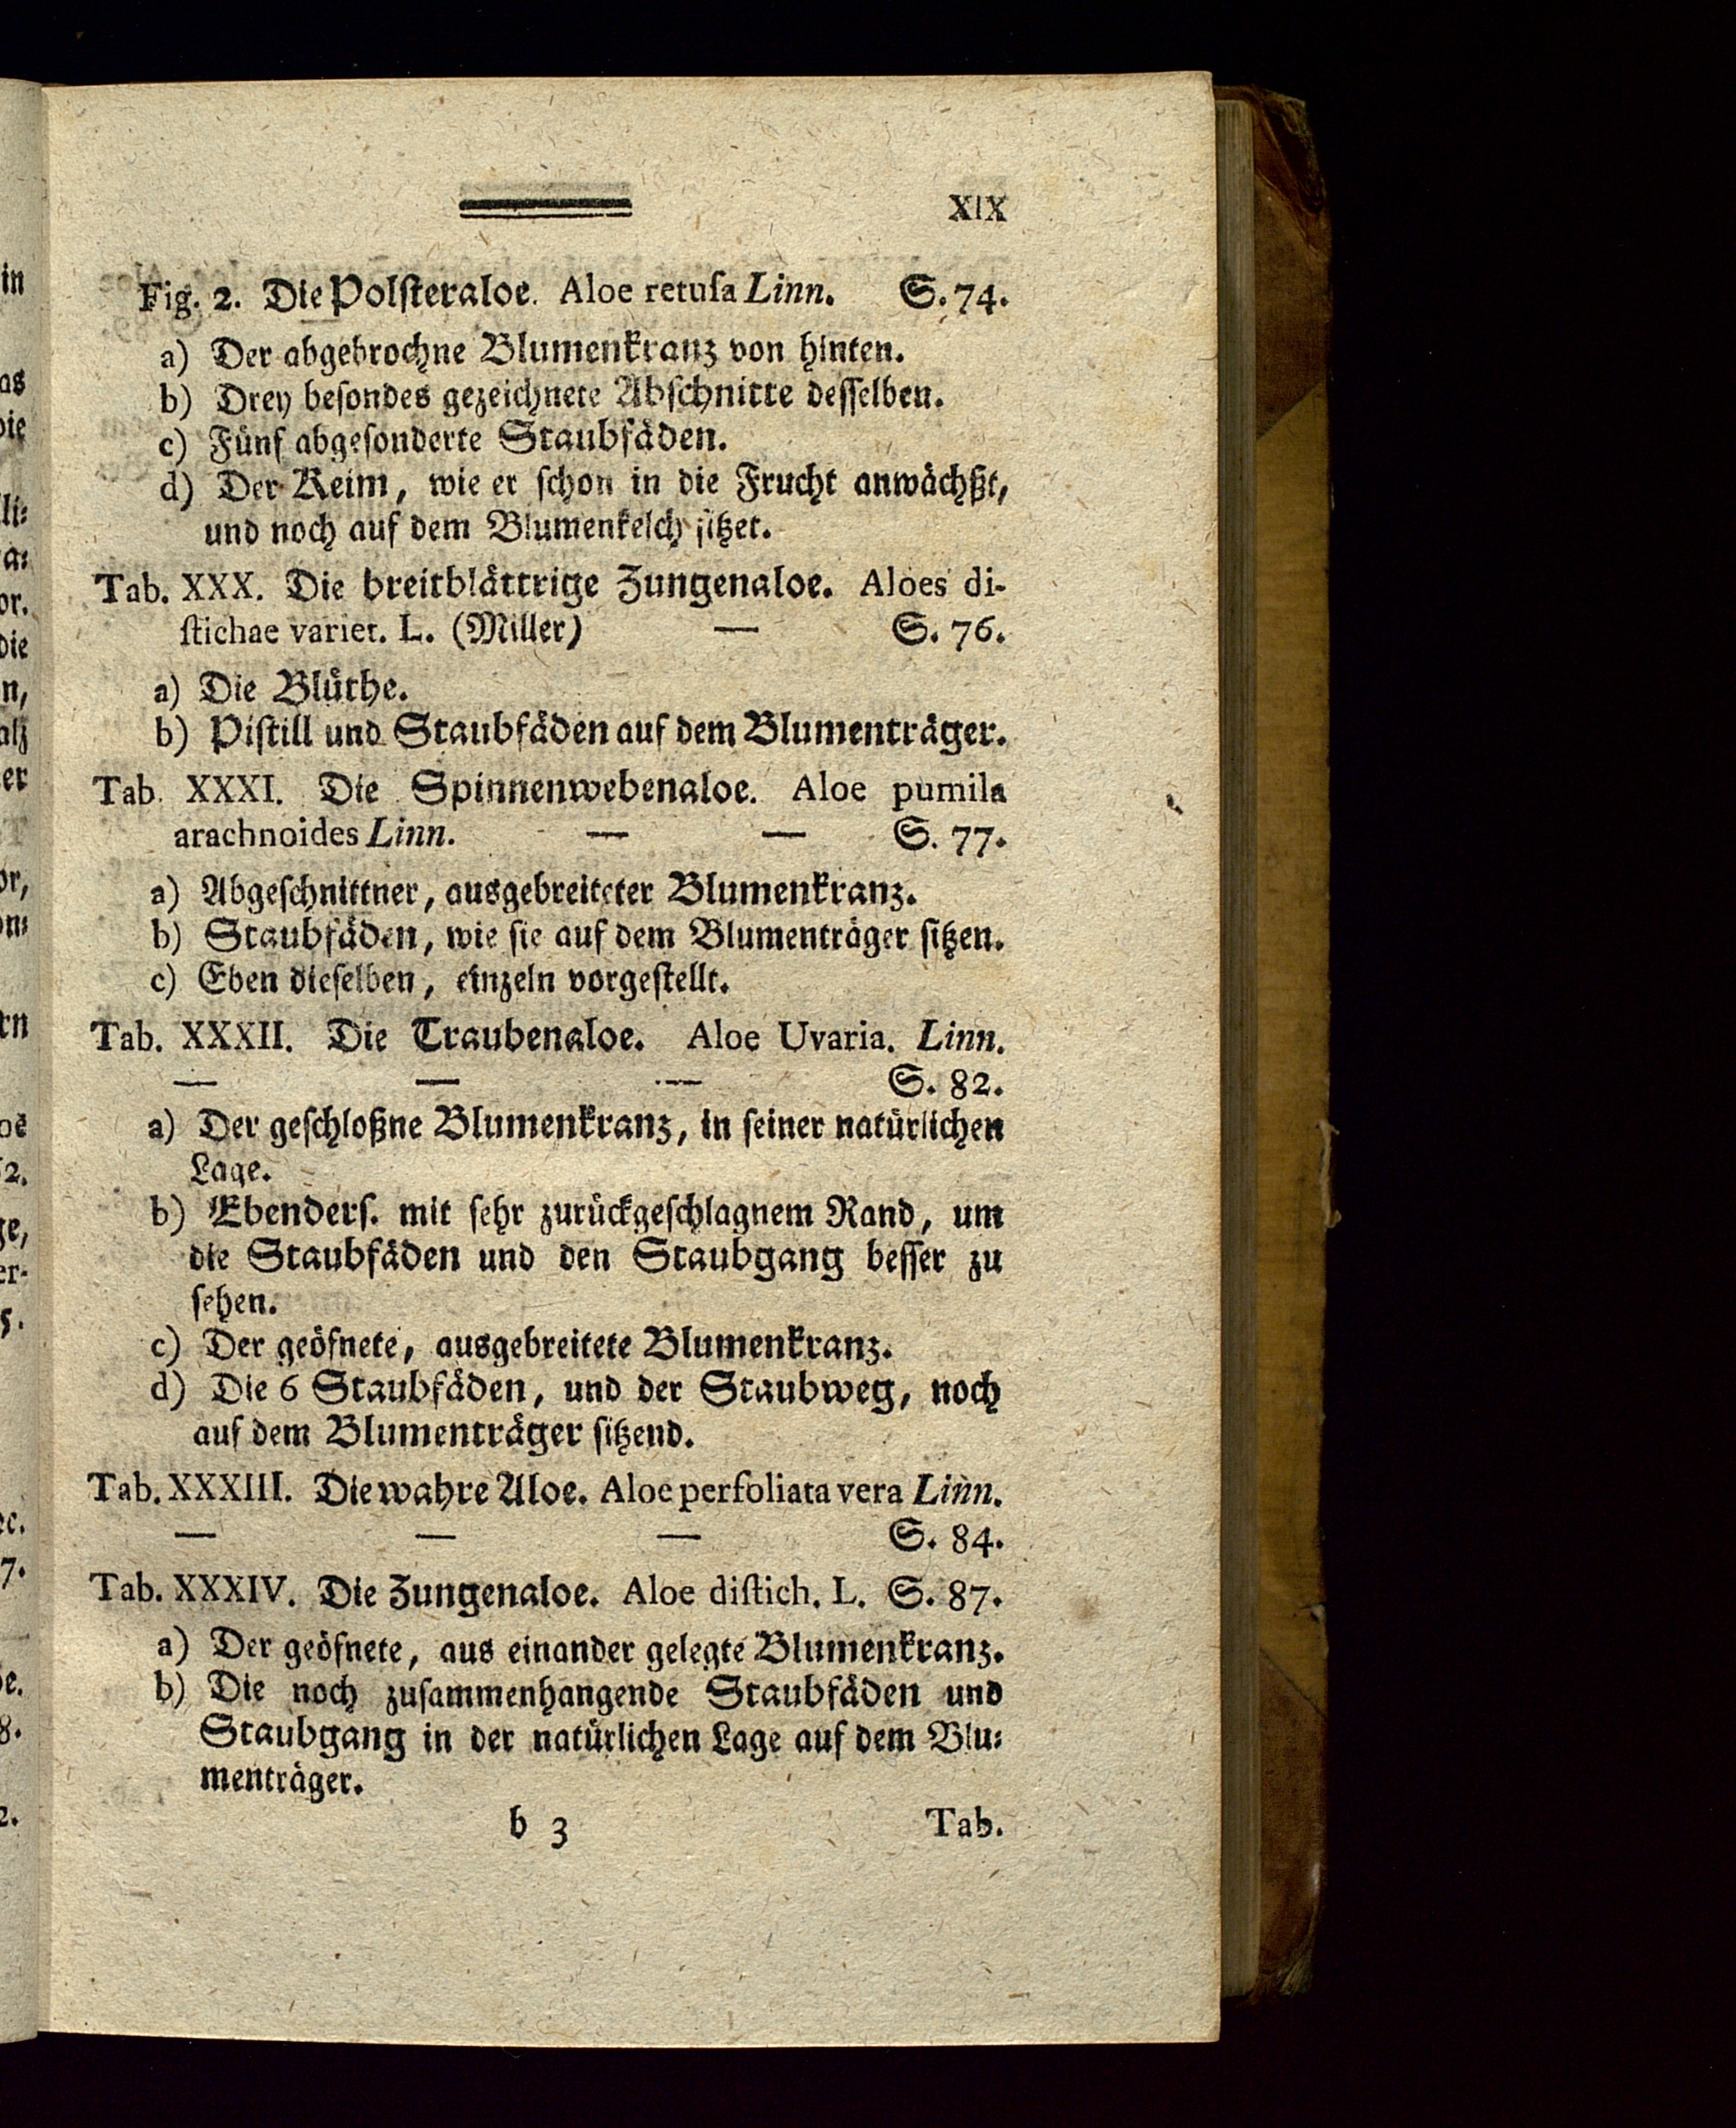 XIX
Fig. 2. Die Polſteraloe. Aloe retuſa Linn. S. 74.
a) Der abgebrochne Blumenkranz von hinten.
b) Drey beſondes gezeichnete Abſchnitte deſſelben.
c) Fünf abgeſonderte Staubfäden.
d) Der Keim, wie er ſchon in die Frucht anwächßt,
und noch auf dem Blumenkelch ſitzet.
Tab. XXX. Die breitblättrige Zungenaloe. Aloes di-
ſtichae variet. L. (Miller) — S. 76.
a) Die Blüthe.
b) Piſtill und Staubfäden auf dem Blumenträger.
Tab. XXXI. Die Spinnenwebenaloe. Aloe pumila
arachnoides Linn. — — S. 77.
a) Abgeſchnittner, ausgebreiteter Blumenkranz.
b) Staubfäden, wie ſie auf dem Blumenträger ſitzen.
c) Eben dieſelben, einzeln vorgeſtellt.
Tab. XXXII. Die Traubenaloe. Aloe Uvaria. Linn.
— — — S. 82.
a) Der geſchloßne Blumenkranz, in ſeiner natürlichen
Lage.
b) Ebenderſ. mit ſehr zurückgeſchlagnem Rand, um
die Staubfäden und den Staubgang beſſer zu
ſehen.
c) Der geöfnete, ausgebreitete Blumenkranz.
d) Die 6 Staubfäden, und der Staubweg, noch
auf dem Blumenträger ſitzend.
Tab. XXXIII. Die wahre Aloe. Aloe perfoliata vera Linn.
— — — S. 84.
Tab. XXXIV. Die Zungenaloe. Aloe diſtich. L. S. 87.
a) Der geöfnete, aus einander gelegte Blumenkranz.
b) Die noch zuſammenhangende Staubfäden und
Staubgang in der natürlichen Lage auf dem Blu⸗
menträger.
b 3 Tab.